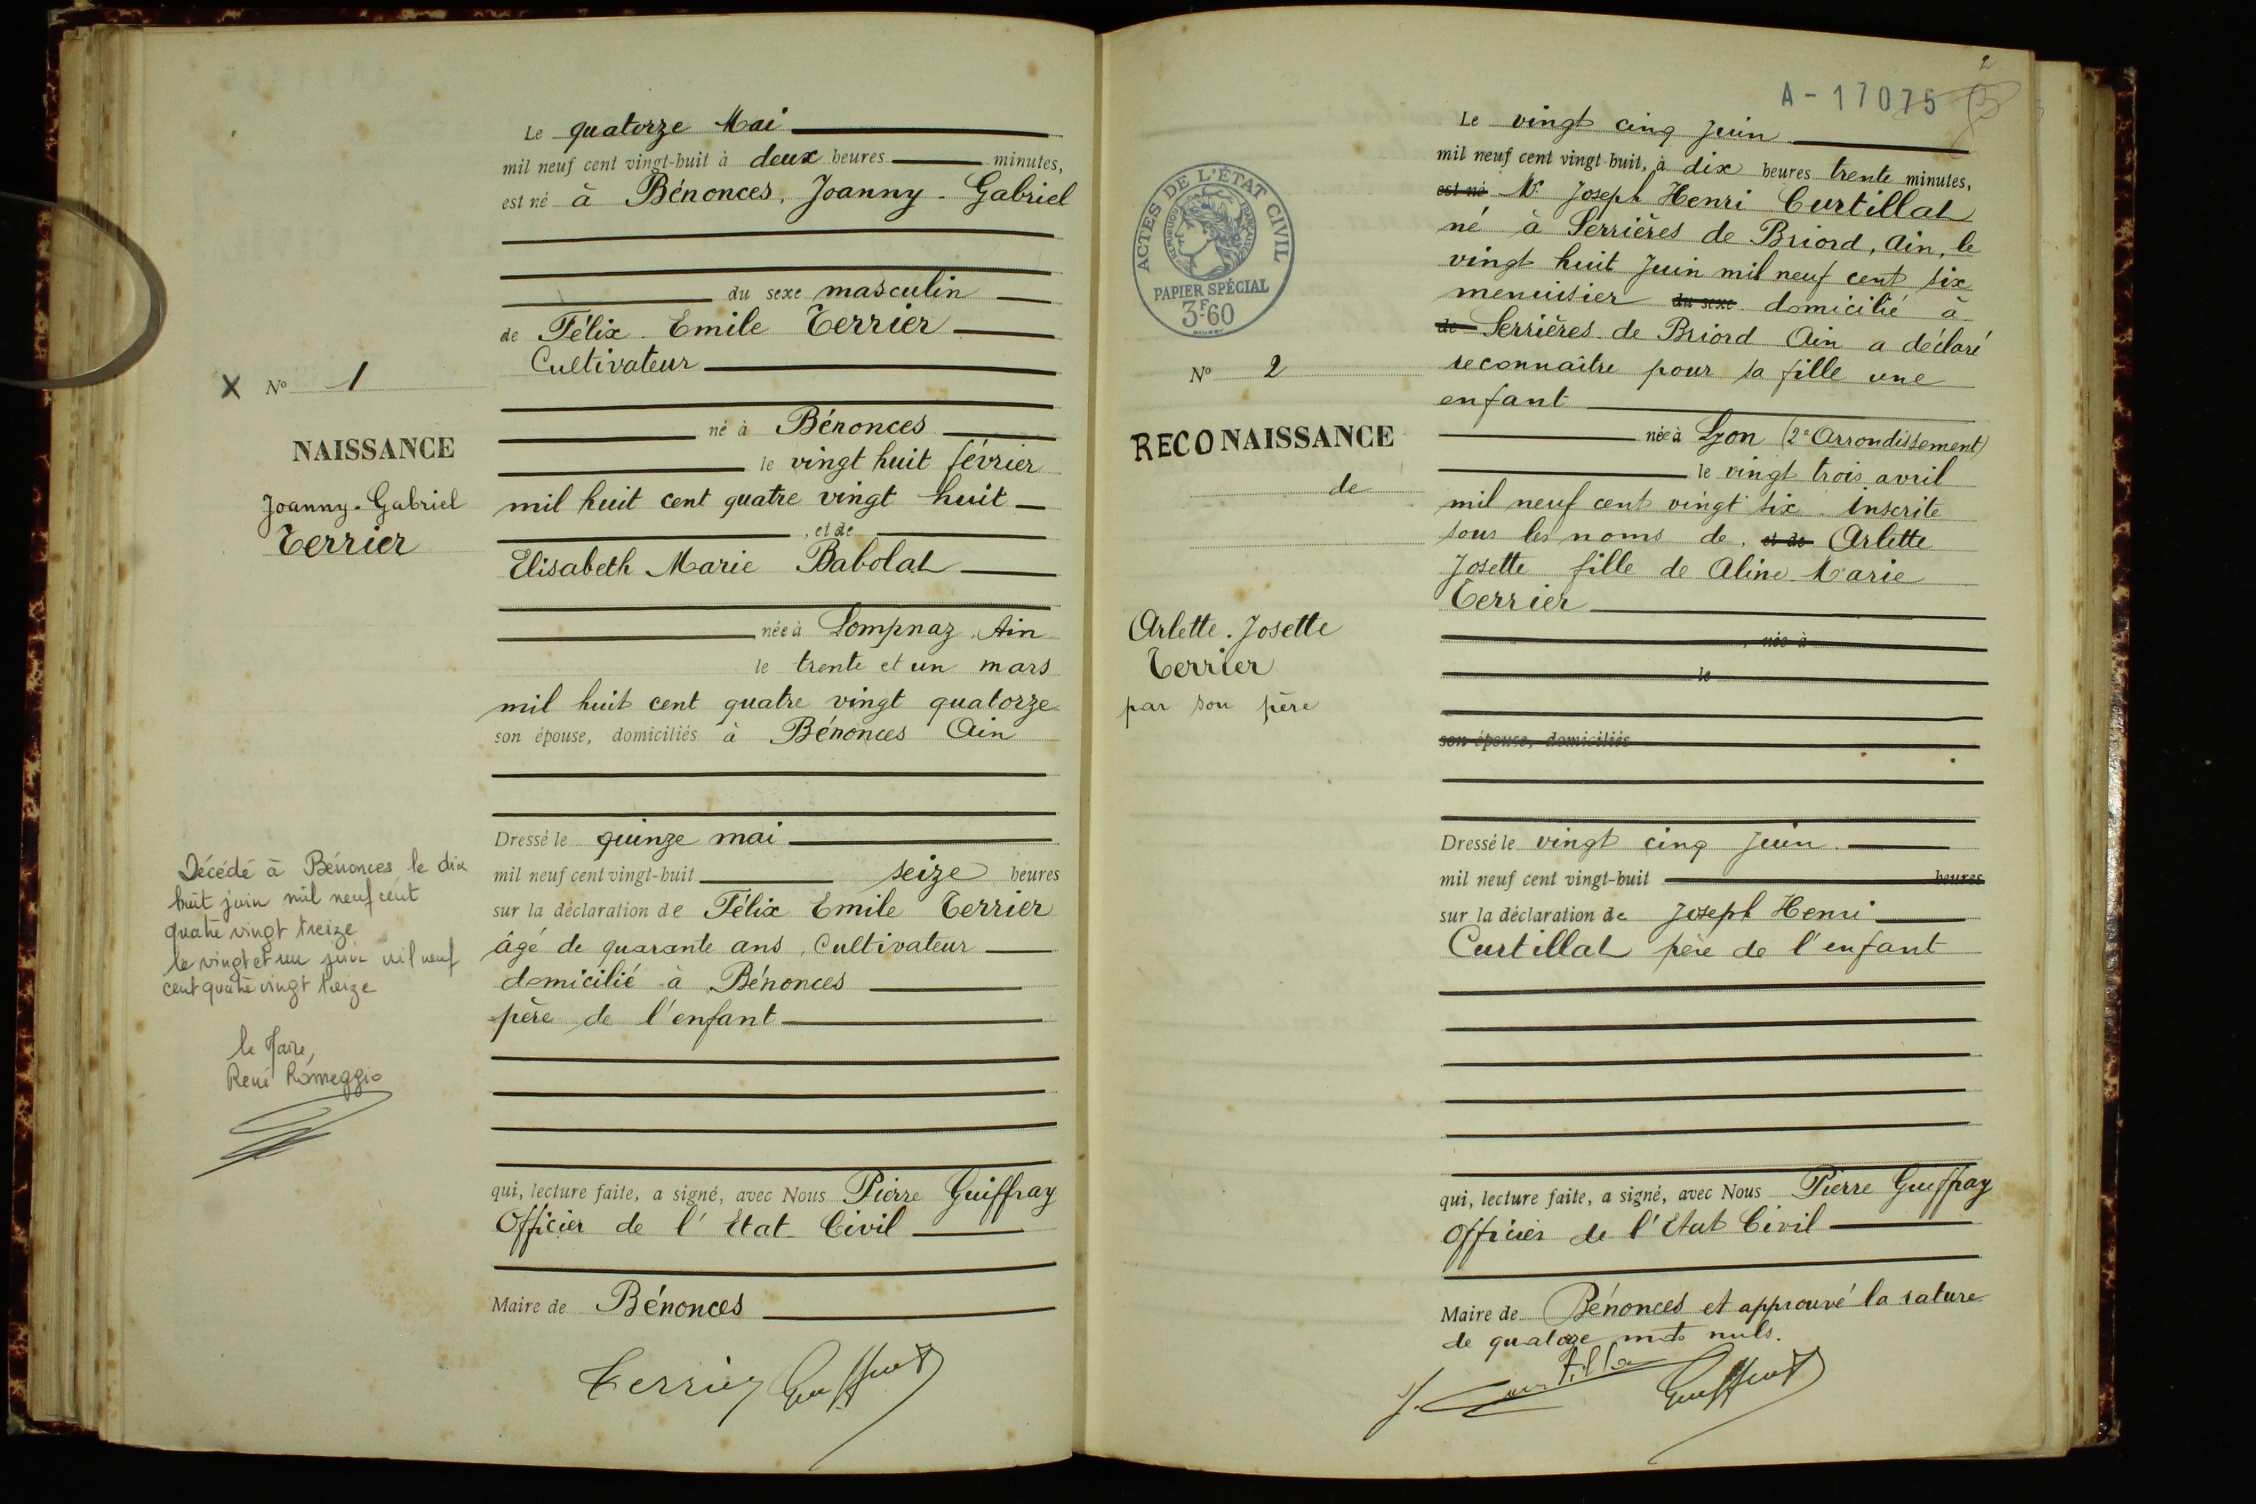 Le quatorze Mai
mil neuf cent vingt-huit à deux heures minutes,
est né à Bénonces, Joanny-Gabriel
du sexe masculin
de Félix Emile Terrier
Cultivateur
X No 1
né à Bénonces
NAISSANCE
le vingt huit février
Joanny-Gabriel
Terrier
mil huit cent quatre vingt huit
, et de
Elisabeth Marie Babolat
née à Lompnaz, Ain
le trente et un mars
mil huit cent quatre vingt quatorze
son épouse, domiciliés à Bénonces Ain
Dressé le quinze mai
mil neuf cent vingt-huit seize heures
sur la déclaration de Félix Emile Terrier
âgé de quarante ans, Cultivateur
domicilié à Bénonces
père de l'enfant
Décédé à Bénonces le dix
huit juin mil neuf cent
quatre vingt treize
le vingt et un juin mil neuf
cent quatre vingt treize
le Maire,
René Roméggio
qui, lecture faite, a signé, avec Nous Pierre Guiffray
Officier de l'Etat Civil
Maire de Bénonces
Terrier Guiffray
2
A-17075
ACTES DE L'ÉTAT CIVIL
RÉPUBLIQUE FRANÇAISE
PAPIER SPÉCIAL
3F60
Le vingt cinq Juin
mil neuf cent vingt-huit, à dix heures trente minutes,
est né Mr Joseph Henri Curtillat
né à Serrières de Briord, Ain, le
vingt huit Juin mil neuf cent six
menuisier du sexe domicilié à
de Serrières de Briord Ain a déclaré
No 2
reconnaître pour sa fille une
enfant
RECONAISSANCE
de
née à Lyon (2e Arrondissement)
le vingt trois avril
mil neuf cent vingt six inscrite
sous les noms de, et de Arlette
Josette fille de Aline Marie
Terrier
Arlette. Josette
Terrier
par son père
, née à
le
son épouse, domiciliés
Dressé le vingt cinq Juin.
mil neuf cent vingt-huit heures
sur la déclaration de Joseph Henri
Curtillat père de l'enfant
qui, lecture faite, a signé, avec Nous Pierre Guiffray
Officier de l'Etat Civil
Maire de Bénonces et approuvé la rature
de quatorze mots nuls.
J. Curtillat Guiffray